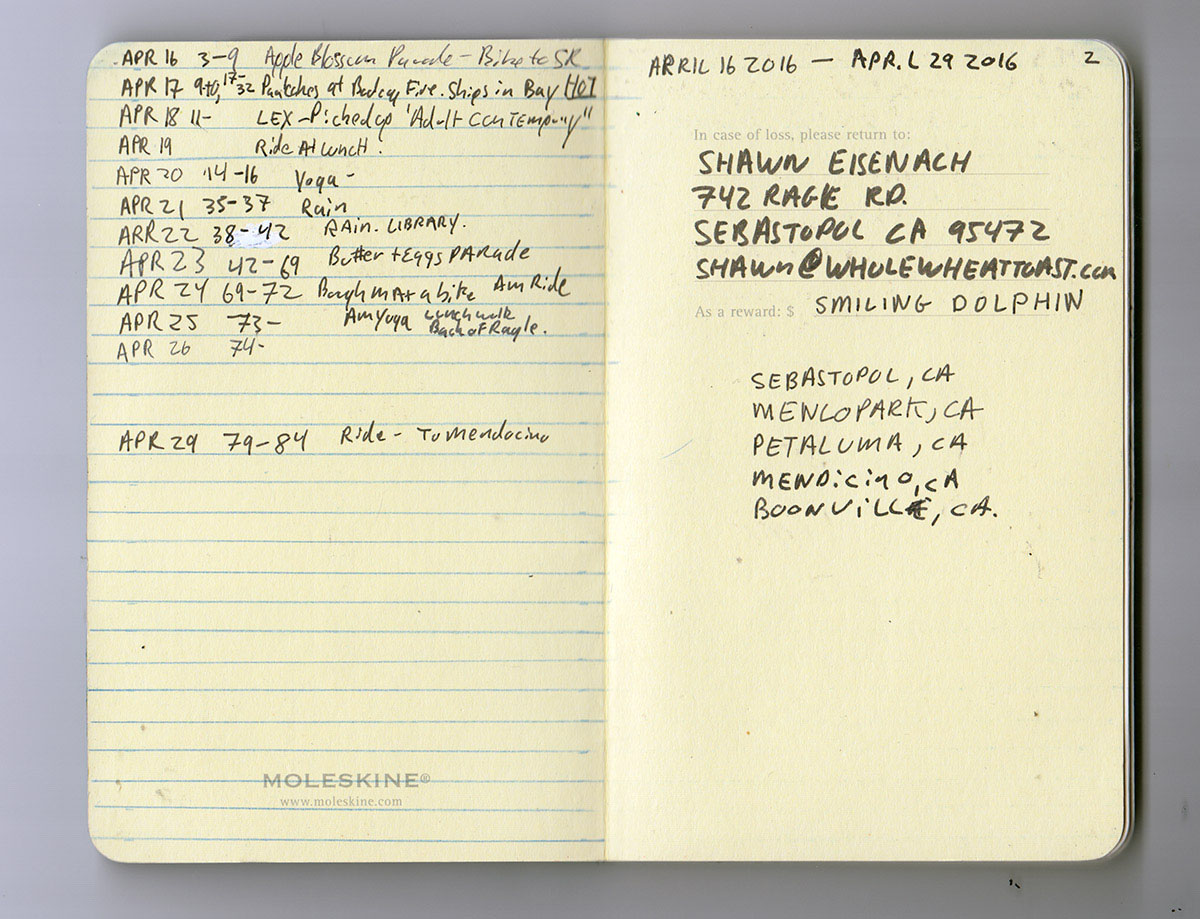 APR 16 3-9 Apple Blossom Parade - Bike to SR
APR 17 9-10, 17-32 at Fire. Ships in Bay HOT
APR 18 11- LEX - Picked up "Adult Contempuary"
APR 19 Ride At Lunch.
APR 20 14-16 Yoga -
APR 21 35-37 Rain
ARR 22 38-42 RAin. LIBRARY.
APR 23 42-69 Butter + Eggs PARADE
APR 24 69-72 Bough mAt a bike Am Ride
APR 25 73- Am Yoga Lunch walk
Back of Ragle.
APR 26 74-
APR 29 79-84 Ride - To Mendocino
MOLESKINE®
www.moleskine.com
ARRIL 16 2016 — APR.L 29 2016 2
In case of loss, please return to:
SHAWN EISENACH
742 RAGLE RD.
SEBASTOPOL CA 95472
SHAWN@WHOLEWHEATTOAST.com
As a reward: $ SMILING DOLPHIN
SEBASTOPOL, CA
MENLOPARK, CA
PETALUMA, CA
MENDiCiNO, CA
BOONViLLE, CA.